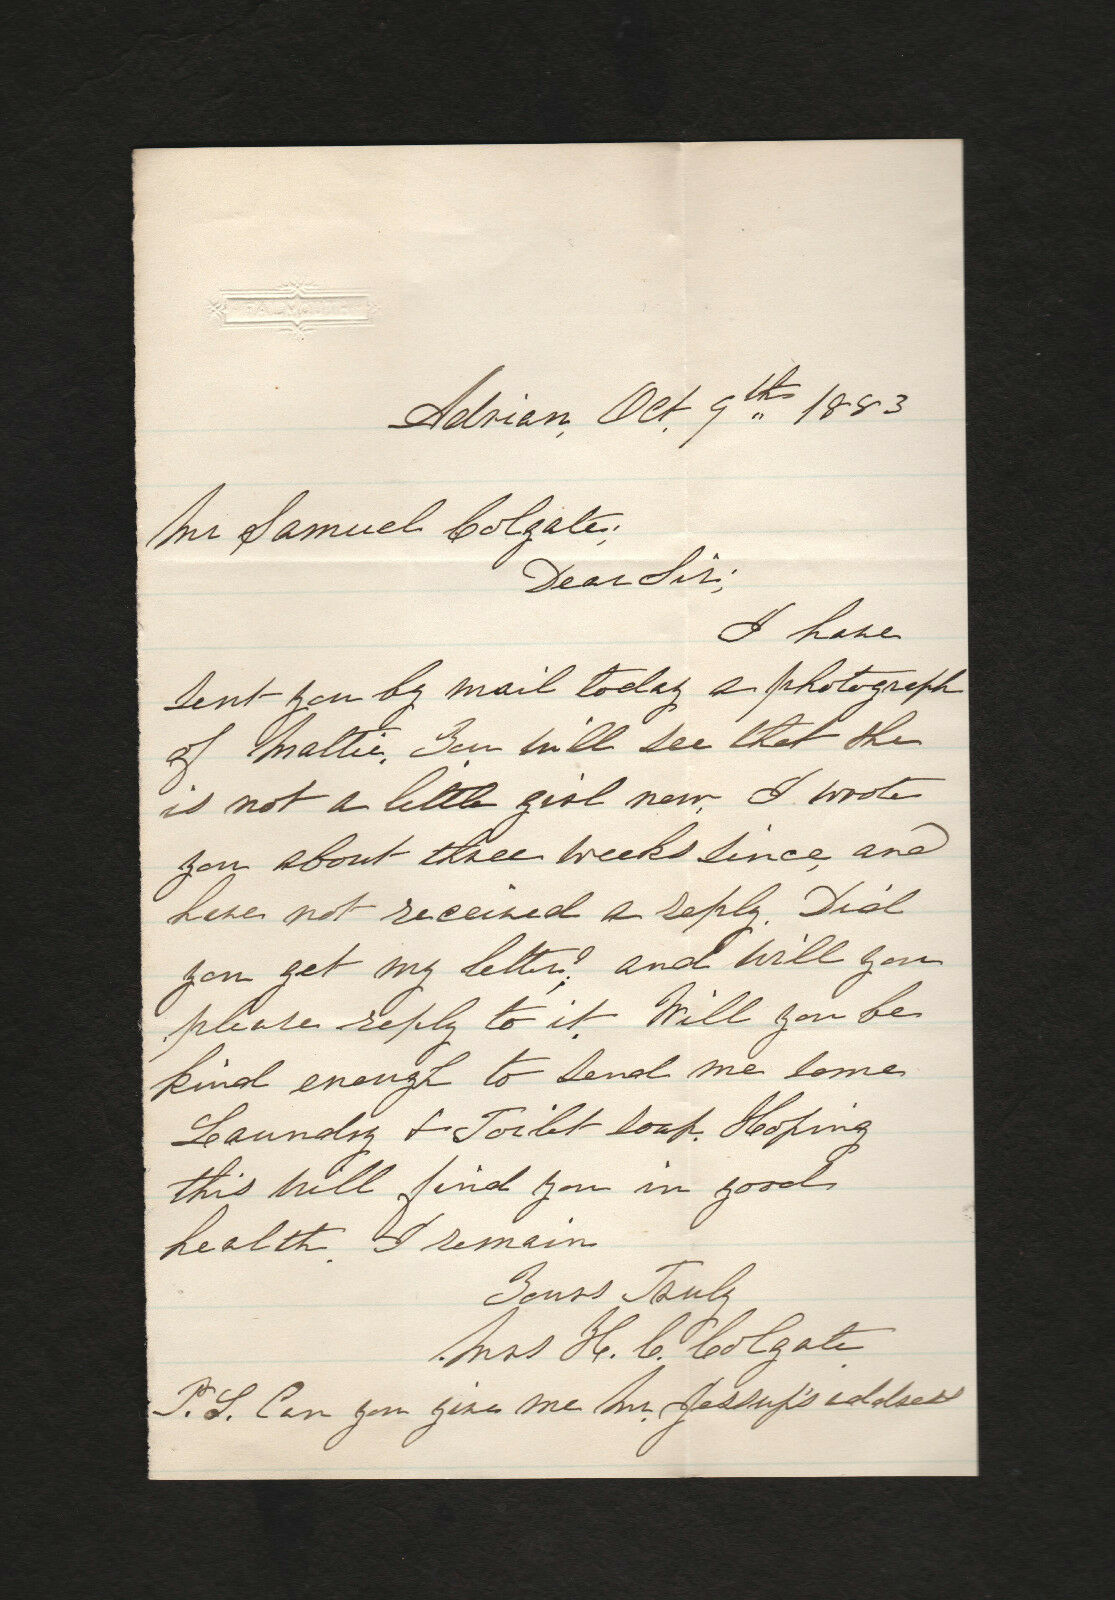 Adrian, Oct. 9th 1883
Mr Samuel Colgate;
Dear Sir;
I have
sent you by mail today a photograph
of Mattie. You will see that she
is not a little girl now. I wrote
you about three weeks since, and
have not received a reply. Did
you get my letter? and will you
please reply to it. Will you be
kind enough to send me some
Laundry & Toilet soap. Hoping
this will find you in good
health. I remain
Yours Truly
Mrs H. C. Colgate
P.S. Can you give me Mr. Jessup's address